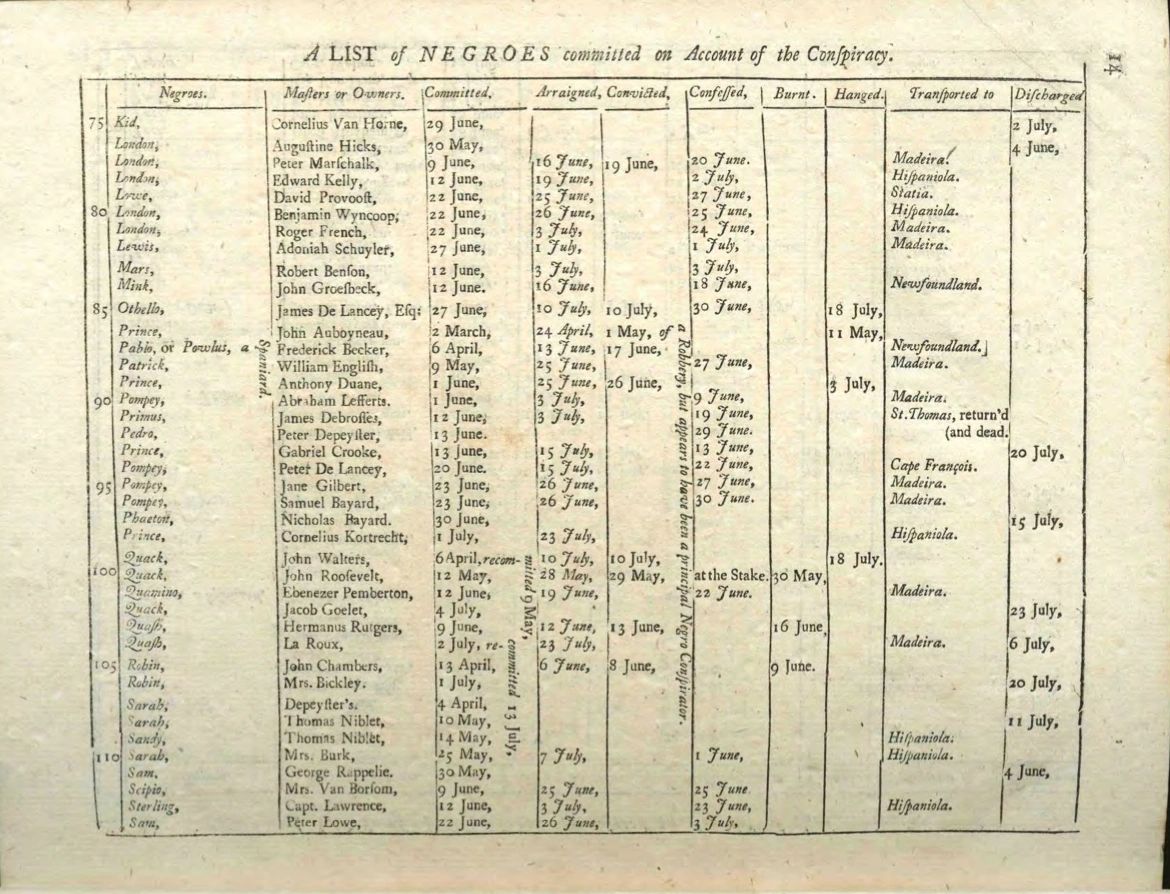 A LIST of NEGROES committed on Account of the Conſpiracy.
14
Negroes. Maſters or Owners. Committed. Arraigned, Convicted, Confeſſed, Burnt. Hanged. Tranſported to Diſcharged
75 Kid, Cornelius Van Horne, 29 June, 2 July,
London, Auguſtine Hicks, 30 May, 4 June,
London, Peter Marſchalk, 9 June, 16 June, 19 June, 20 June. Madeira.
London, Edward Kelly, 12 June, 19 June, 2 July, Hiſpaniola.
Lowe, David Provooſt, 22 June, 25 June, 27 June, Statia.
80 London, Benjamin Wyncoop, 22 June, 26 June, 25 June, Hiſpaniola.
London, Roger French, 22 June, 3 July, 24 June, Madeira.
Lewis, Adoniah Schuyler, 27 June, 1 July, 1 July, Madeira.
Mars, Robert Benſon, 12 June, 3 July, 3 July,
Mink, John Groeſbeck, 12 June. 16 June, 18 June, Newfoundland.
85 Othello, James De Lancey, Eſq: 27 June, 10 July, 10 July, 30 June, 18 July,
Prince, John Auboyneau, 2 March, 24 April, 1 May, of 11 May,
a Robbery, but appears to have been a principal Negro Conſpirator.
Pablo, or Powlus, a Frederick Becker, 6 April, 13 June, 17 June, Newfoundland.
Spaniard.
Patrick, William Engliſh, 9 May, 25 June, 27 June, Madeira.
Prince, Anthony Duane, 1 June, 25 June, 26 June, 3 July,
90 Pompey, Abraham Lefferts. 1 June, 3 July, 9 June, Madeira.
Primus, James Debroſſes, 12 June, 3 July, 19 June, St. Thomas, return'd
Pedro, Peter Depeyſter, 13 June. 29 June. (and dead.
Prince, Gabriel Crooke, 13 June, 15 July, 13 June, 20 July,
Pompey, Peter De Lancey, 20 June. 15 July, 22 June, Cape François.
95 Pompey, Jane Gilbert, 23 June, 26 June, 27 June, Madeira.
Pompey, Samuel Bayard, 23 June, 26 June, 30 June. Madeira.
Phaeton, Nicholas Bayard. 30 June, 15 July,
Prince, Cornelius Kortrecht, 1 July, 23 July, Hiſpaniola.
Quack, John Walters, 6 April, recom- 10 July, 10 July, 18 July.
mitted 9 May,
100 Quack, John Rooſevelt, 12 May, 28 May, 29 May, at the Stake. 30 May,
Quamino, Ebenezer Pemberton, 12 June, 19 June, 22 June. Madeira.
Quack, Jacob Goelet, 4 July, 23 July,
Quaſh, Hermanus Rutgers, 9 June, 12 June, 13 June, 16 June,
Quaſh, La Roux, 2 July, re- 23 July, Madeira. 6 July,
committed 13 July,
105 Robin, John Chambers, 13 April, 6 June, 8 June, 9 June.
Robin, Mrs. Bickley. 1 July, 20 July,
Sarah, Depeyſter's. 4 April,
Sarah, Thomas Niblet, 10 May, 11 July,
Sandy, Thomas Niblet, 14 May, Hiſpaniola.
110 Sarah, Mrs. Burk, 25 May, 7 July, 1 June, Hiſpaniola.
Sam, George Rappelie. 30 May, 4 June,
Scipio, Mrs. Van Borſom, 9 June, 25 June, 25 June
Sterling, Capt. Lawrence, 12 June, 3 July, 23 June, Hiſpaniola.
Sam, Peter Lowe, 22 June, 26 June, 3 July,